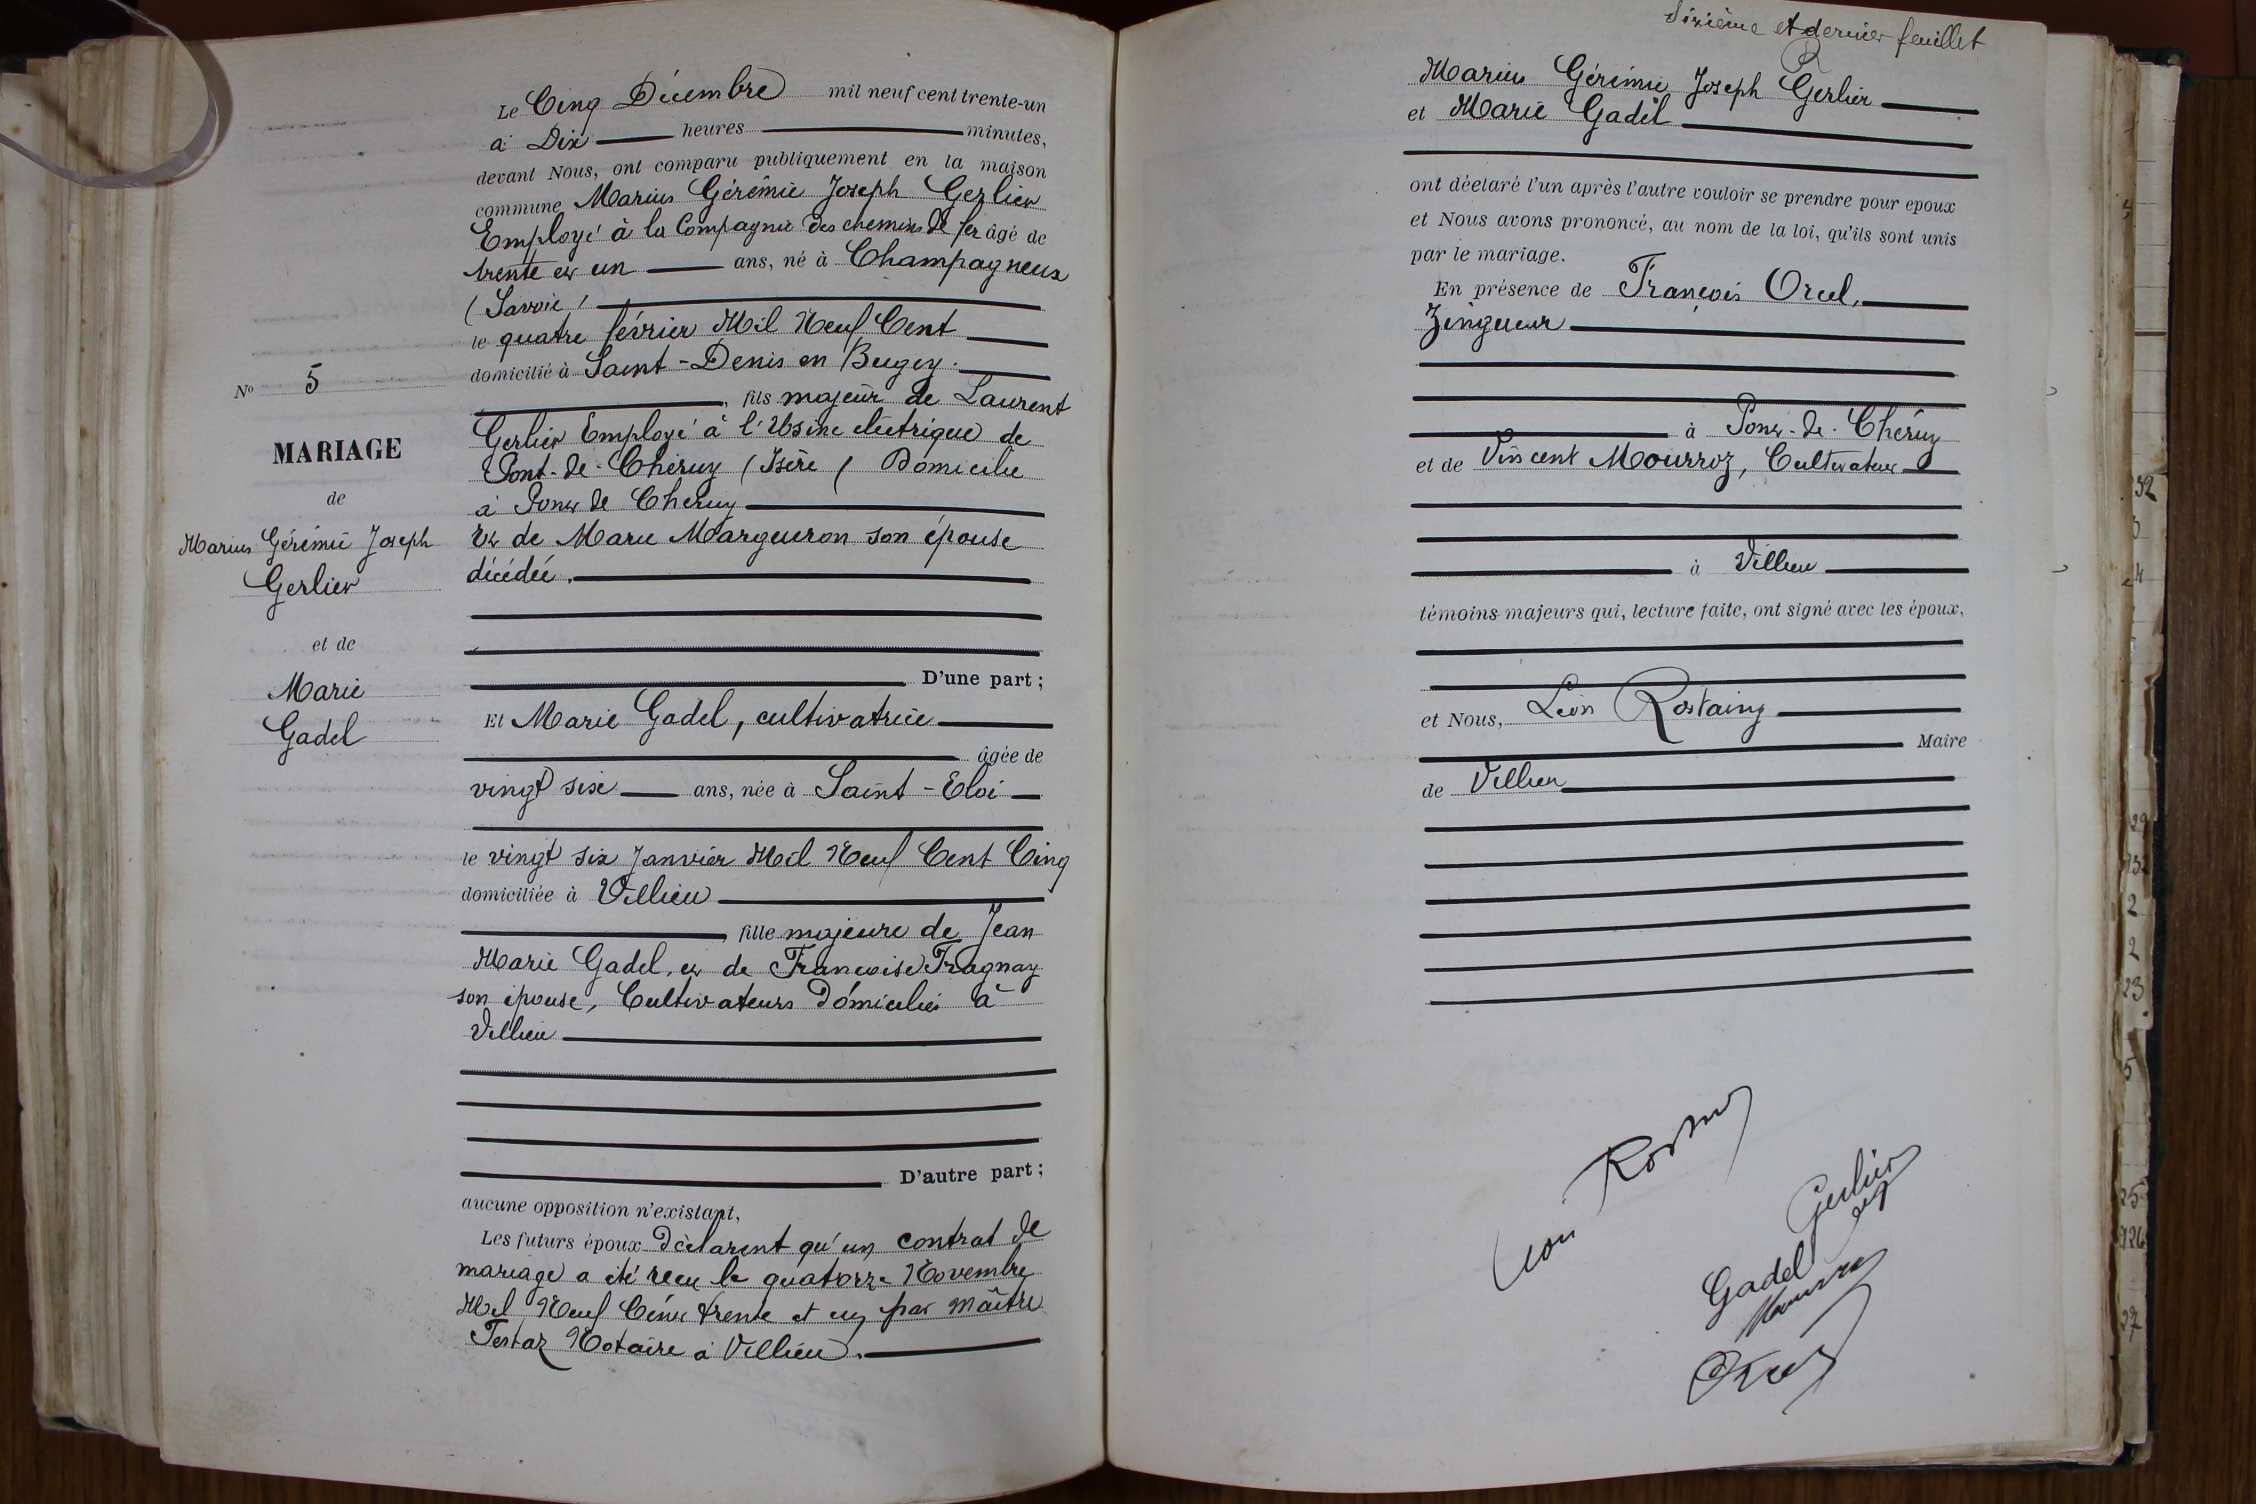 N° 5
MARIAGE
de
Marius Gérémie Joseph
Gerlier
et de
Marie
Gadel
Le Cinq Décembre mil neuf cent trente-un
à Dix heures minutes,
devant Nous, ont comparu publiquement en la maison
commune Marius Gérémie Joseph Gerlier
Employé à la Compagnie des chemins de fer âgé de
trente et un ans, né à Champagneux
(Savoie)
le quatre février Mil Neuf Cent
domicilié à Saint-Denis en Bugey.
, fils majeur de Laurent
Gerlier Employé à l'Usine électrique de
Pont-de-Chéruy (Isère) Domicilié
à Pont de Cheruy
Et de Marie Margueron son épouse
décédée.
D'une part;
Et Marie Gadel, cultivatrice
âgée de
vingt six ans, née à Saint-Eloi
le vingt six Janvier Mil Neuf Cent Cinq
domiciliée à Villieu
, fille majeure de Jean
Marie Gadel, et de Francoise Tragnay
son épouse, Cultivateurs Domiciliés à
Villieu
D'autre part;
aucune opposition n'existant,
Les futurs époux Déclarent qu'un contrat de
mariage a été recu le quatorze Novembre
Mil Neuf Cent trente et un par Maître
Testaz Notaire à Villieu.
Sixième et dernier feuillet
R
Marius Gérémie Joseph Gerlier
et Marie Gadel
ont déclaré l'un après l'autre vouloir se prendre pour epoux
et Nous avons prononcé, au nom de la loi, qu'ils sont unis
par le mariage.
En présence de François Orcel,
Zingueur
à Pont-de-Chéruy
et de Vincent Mourroz, Cultivateur
à Villieu
témoins majeurs qui, lecture faite, ont signé avec les époux,
et Nous, Léon Rostaing
Maire
de Villieu
Léon Rostaing
Gerlier
Gadel
Mourroz
Orcel